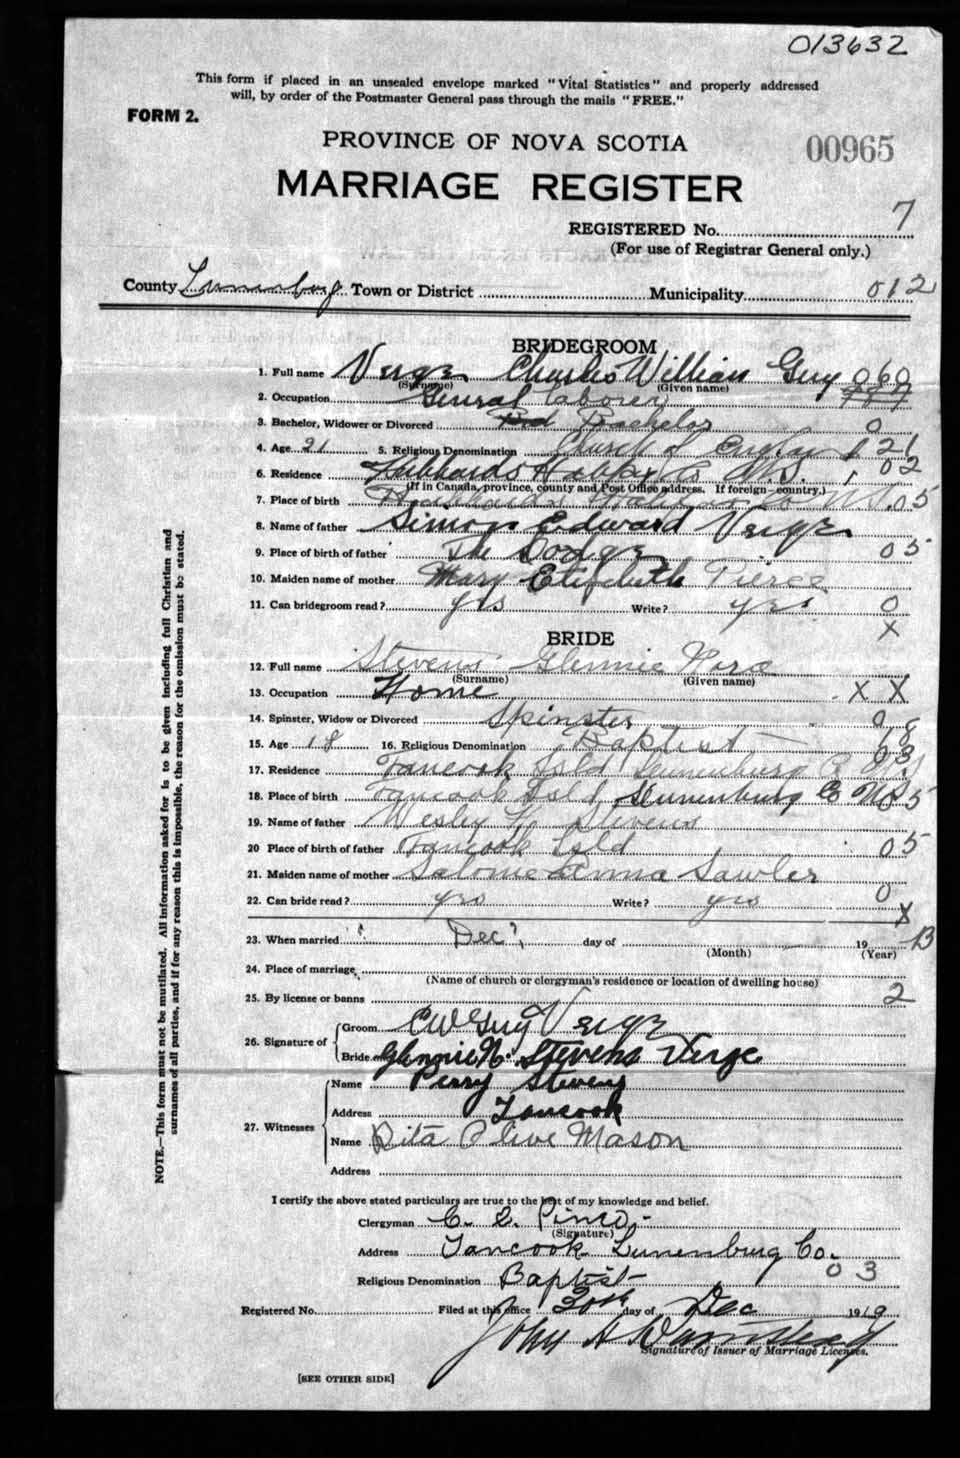 013632
This form if placed in an unsealed envelope marked "Vital Statistics" and properly addressed
will, by order of the Postmaster General pass through the mails "FREE."
FORM 2.
PROVINCE OF NOVA SCOTIA
00965
MARRIAGE REGISTER
REGISTERED No. 7
(For use of Registrar General only.)
County Lunenburg Town or District Municipality 012
BRIDEGROOM
1. Full name Verge Charles William Guy 060
(Surname) (Given name)
2. Occupation General laborer
3. Bachelor, Widower or Divorced Bachelor 0
4. Age 21 5. Religious Denomination Church of England 21
6. Residence Hubbards Halifax Co N.S. 02
(If in Canada, province, county and Post Office address. If foreign—country.)
7. Place of birth Hubbards Halifax Co N.S. 05
8. Name of father Simon Edward Verge
9. Place of birth of father The Lodge 05
10. Maiden name of mother Mary Elizabeth Pierce
11. Can bridegroom read? yes Write? yes 0
X
BRIDE
12. Full name Stevens Glennie Nora
(Surname) (Given name)
13. Occupation Home X X
14. Spinster, Widow or Divorced Spinster 0
15. Age 18 16. Religious Denomination Baptist
17. Residence Tancook Isld Lunenburg Co N.S
18. Place of birth Tancook Isld Lunenburg Co N.S 5
19. Name of father Wesley H. Stevens
20 Place of birth of father Tancook Isld 05
21. Maiden name of mother Salome Anna Sawler
22. Can bride read? yes Write? yes 0
X
23. When married Dec day of 19
(Month) (Year)
24. Place of marriage
(Name of church or clergyman's residence or location of dwelling house)
25. By license or banns 2
26. Signature of Groom C W Guy Verge
Bride Glennie N. Stevens Verge
27. Witnesses Name Perry Stevens
Address Tancook
Name Rita Olive Mason
Address
I certify the above stated particulars are true to the best of my knowledge and belief.
Clergyman C. S.
(Signature)
Address Tancook Lunenburg Co.
03
Religious Denomination Baptist
Registered No. Filed at this office 30th day of Dec 1919
John H
Signature of Issuer of Marriage Licenses.
[SEE OTHER SIDE]
NOTE.—This form must not be mutilated. All information asked for is to be given including full Christian and
surnames of all parties, and if for any reason this is impossible, the reason for the omission must be stated.